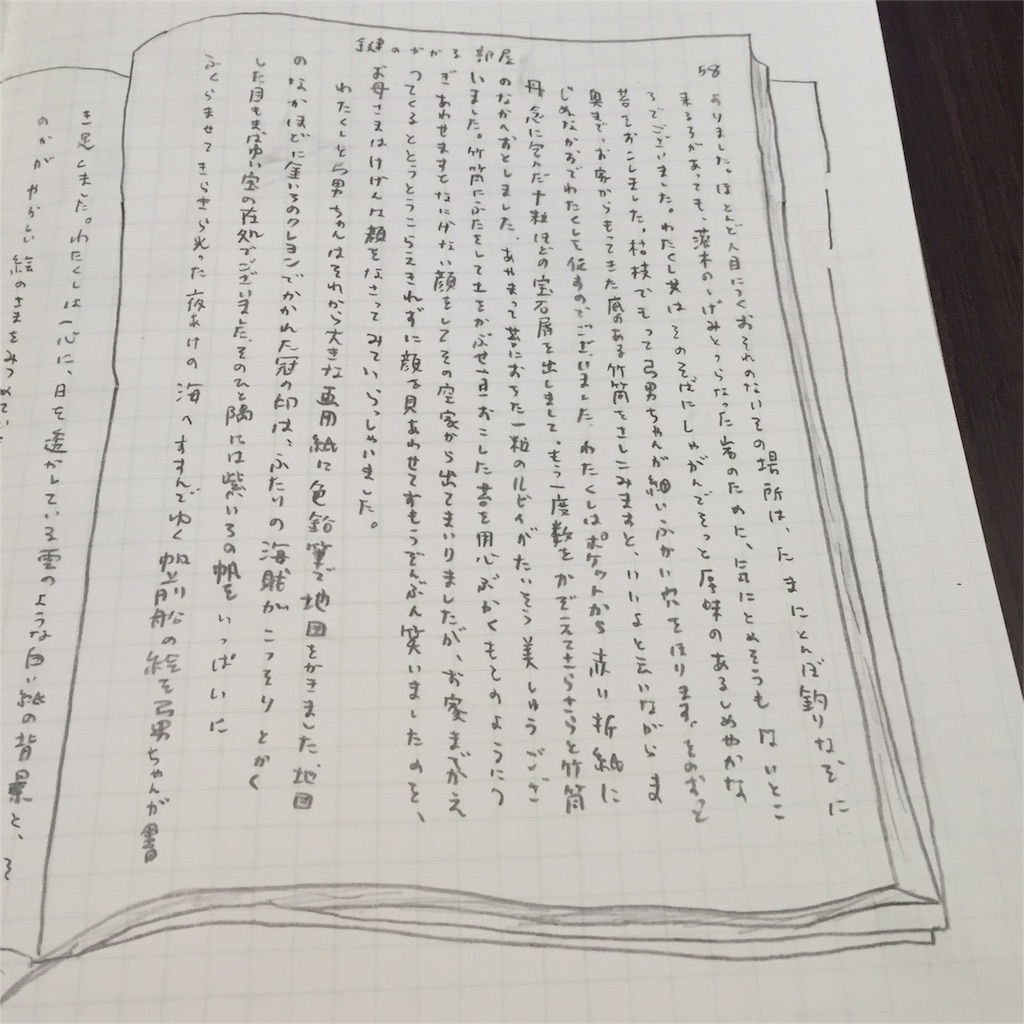 鍵のかかる部屋
58
ありました。ほとんど人目につくおそれのないその場所は、たまにとんぼ釣りなぞに
来る子があっても、灌木のしげみとうらなった岩のために、気にとめそうもないとこ
ろでございました。わたくし共はそのそばにしゃがんでそっと厚味のあるしめやかな
苔をおこしました。枯枝でもって弓男ちゃんが細いふかい穴をほります。そのおと
奥まで、お家からもってきた底のある竹筒をさしこみますと、いいよと云いながらま
じめなかおでわたくしを促すのでございました。わたくしはポケットから赤い折紙に
丹念に包んだ十粒ほどの宝石屑を出しまして、もう一度数をかぞえてさらさらと竹筒
のなかへおとしました。あやまって苔におちた一粒のルビイがたいそう美しゅうござ
いました。竹筒にふたをして土をかぶせ一旦おこした苔を用心ぶかくもとのようにつ
ぎあわせますとなにげない顔をしてその空家から出てまいりましたが、お家までかえ
ってくるととうとうこらえきれずに顔を見あわせておもうぞんぶん笑いましたのを、
お母さまはけげんな顔をなさってみていらっしゃいました。
わたくしと弓男ちゃんはそれから大きな画用紙に色鉛筆で地図をかきました。地図
のなかほどに金いろのクレヨンでかかれた冠の印は、ふたりの海賊がこっそりとかく
した目もまばゆい宝の在処でございました。そのひと隅には紫いろの帆をいっぱいに
ふくらませてきらきら光った夜あけの海へすすんでゆく帆前船の絵を弓男ちゃんが書
き足しました。わたくしは一心に、日を透かしている雲のような白い紙の背景と、そ
のかがやかしい絵のさまをみつめてい